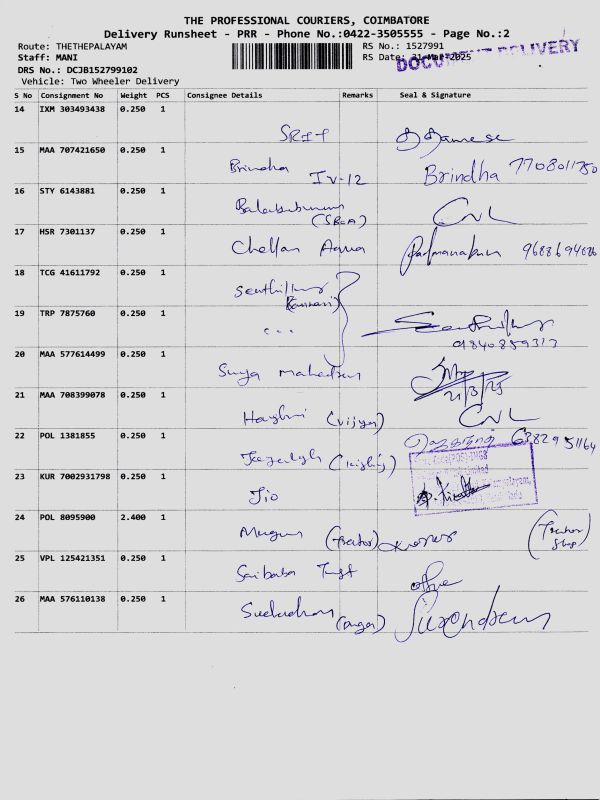 THE PROFESSIONAL COURIERS, COIMBATORE
Delivery Runsheet - PRR - Phone No.:0422-3505555 - Page No.:2
Route: THETHEPALAYAM
RS No.: 1527991
Staff: MANI
RS Date: 31-Mar-2025
DOCUMENT DELIVERY
DRS No.: DCJB152799102
Vehicle: Two Wheeler Delivery
S No Consignment No Weight PCS Consignee Details Remarks Seal & Signature
14 IXM 303493438 0.250 1
SRIT
15 MAA 707421650 0.250 1
Brindha IV-12 Brindha 7708011750
16 STY 6143881 0.250 1
17 HSR 7301137 0.250 1
CNL
Chellam 9688694686
18 TCG 41611792 0.250 1
Senthilkumar
19 TRP 7875760 0.250 1
Senthilkumar
9840859317
20 MAA 577614499 0.250 1
Surya
21/3/25
21 MAA 708399078 0.250 1
(Vijay) CNL
22 POL 1381855 0.250 1
6382951164
23 KUR 7002931798 0.250 1
Jio
24 POL 8095900 2.400 1
Murugan (Tractor) (Tractor Shop)
25 VPL 125421351 0.250 1
Saibaba Trust
26 MAA 576110138 0.250 1
Surendran